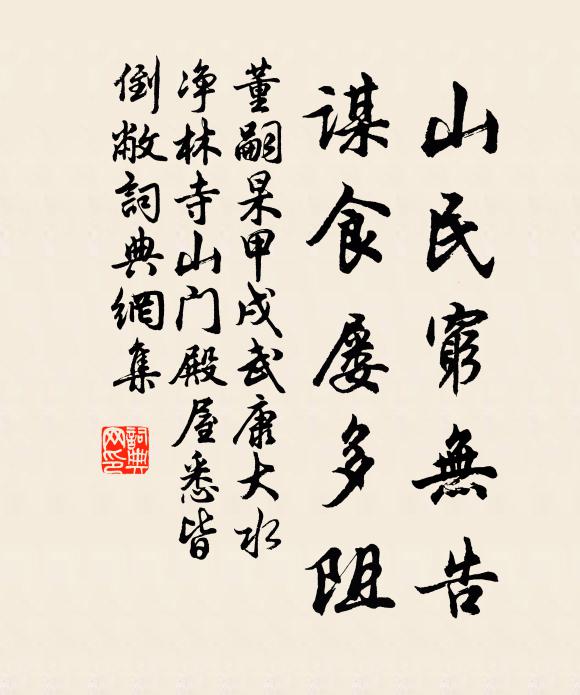 山民窮無告
謀食屡多阻
董嗣杲甲戌武康大水
净林寺山门殿屋悉皆
倒敝詞典網集
詞典
网印